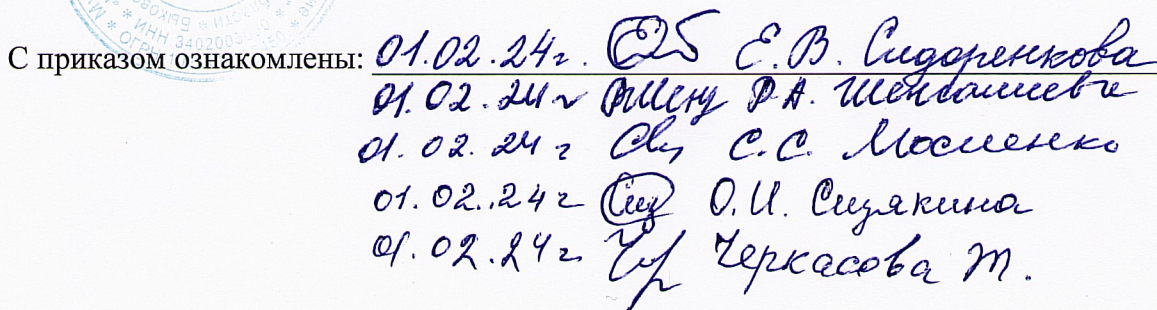 ИНН 340200
ОГРН
С приказом ознакомлены: 01.02.24г. Е.В. Сидоренкова
01.02.24г Р.А. Шенгалиева
01.02.24г С.С. Мосиенко
01.02.24г О.И. Сизякина
01.02.24г. Черкасова Т.